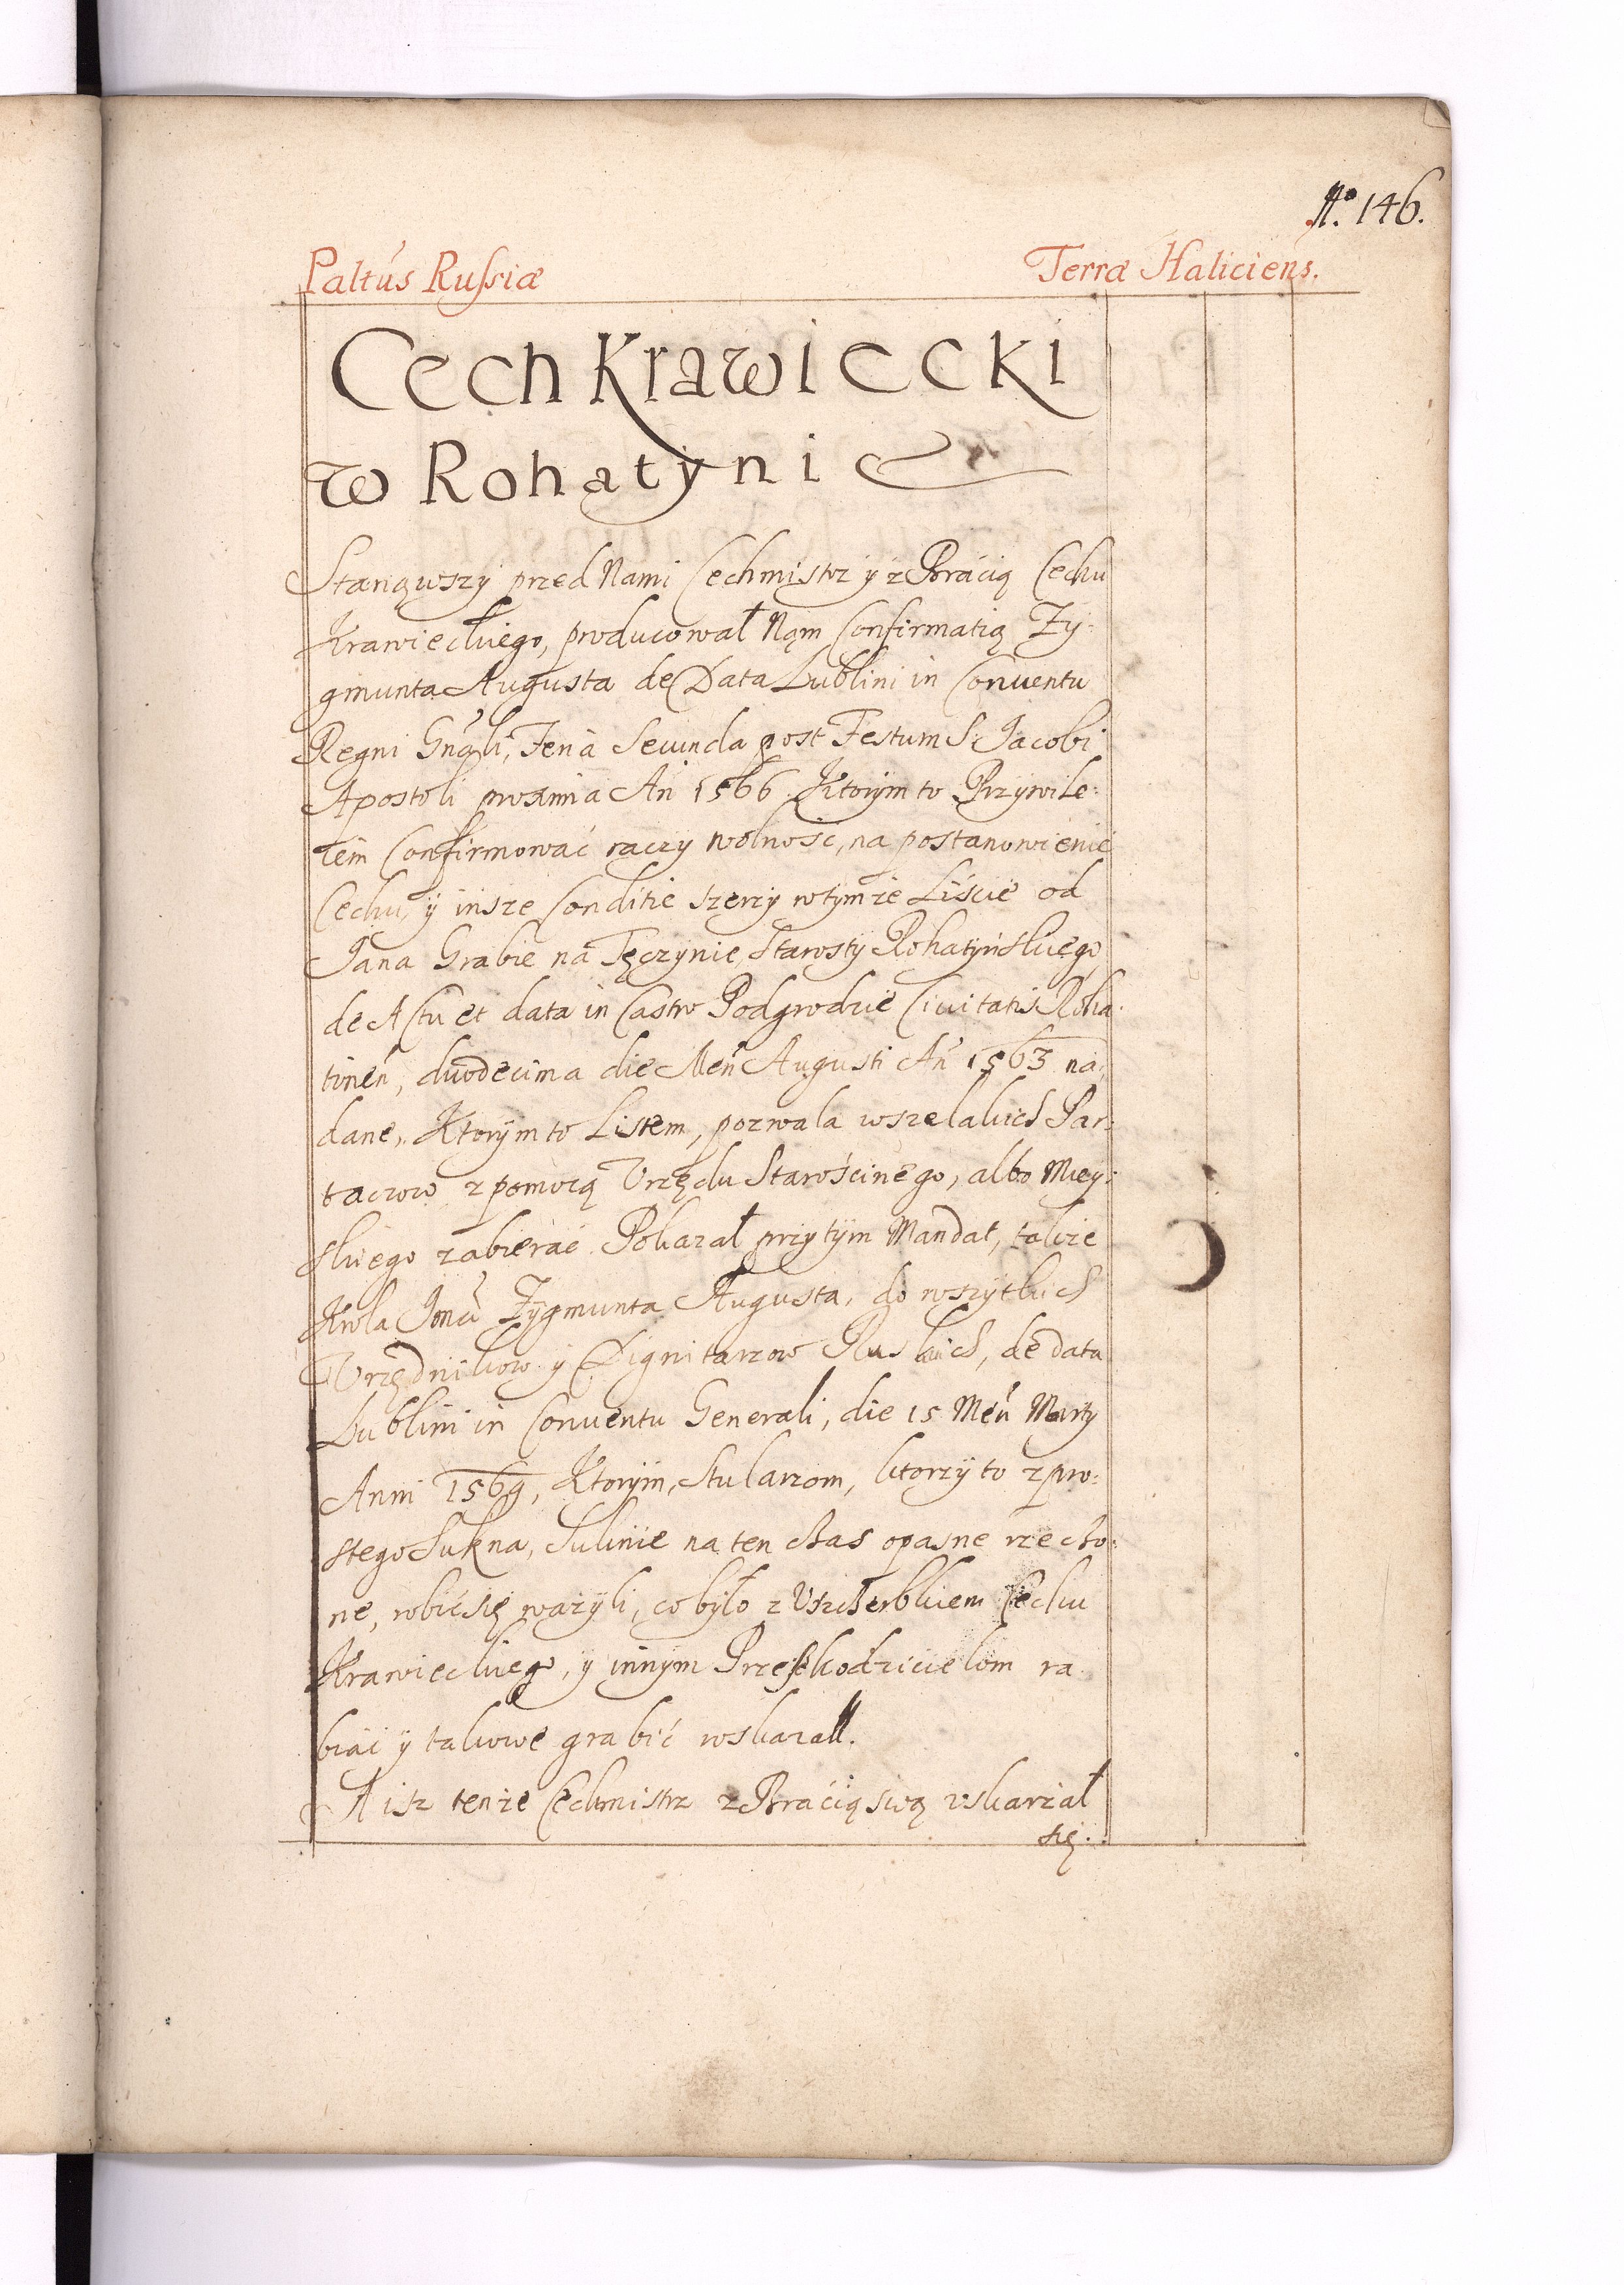 No. 146.
Paltus Russiæ Terræ Haliciens.
Cech Krawiecki
w Rohatyni
Stanąwszy przed Nami Cechmistrz y z Bracią Cechu
Krawieckiego, producował Nąm Confirmatią Zy-
gmunta Augusta de Data Lublini in Conuentu
Regni Gnāli, Feria Secunda post Festum S. Jacobi
Apostoli proxima An 1566. Ktorym to Przywile-
iem Confirmować raczy wolność, na postanowienie
Cechu, y insze Conditie szerzy w tymże Liście od
Jana Grabie na Tęczynie, Starosty Rohatyńskiego,
de Actu et data in Castro Podgrodzie Ciuitatis Roha-
tinen, duodecima die Men Augusti An 1563 na-
dane, Ktorym to Listem, pozwala wszelakich Par-
taczow z pomocą Vrzędu Starościnego, albo Miey-
skiego zabierać. Pokazał przy tym Mandat, takze
Krola Jmci Zygmunta Augusta, do wszytkich
Vrzędnikow y Dignitarzow Ruskich, de data
Lublini in Conuentu Generali, die 15 Men Marty
Anni 1569, Ktorym, Stularzom, ktorzy to z pro-
stego Sukna, Suknie na ten chas opasne rzecho-
ne, robić się ważyli, co było z Vszcherbkiem Cechu
Krawieckiego, y innym Przeszkodzicielom za
biać y takowe grabić wskazał.
A isz tenże Cechmistrz z Bracią swą vskarżał
się.